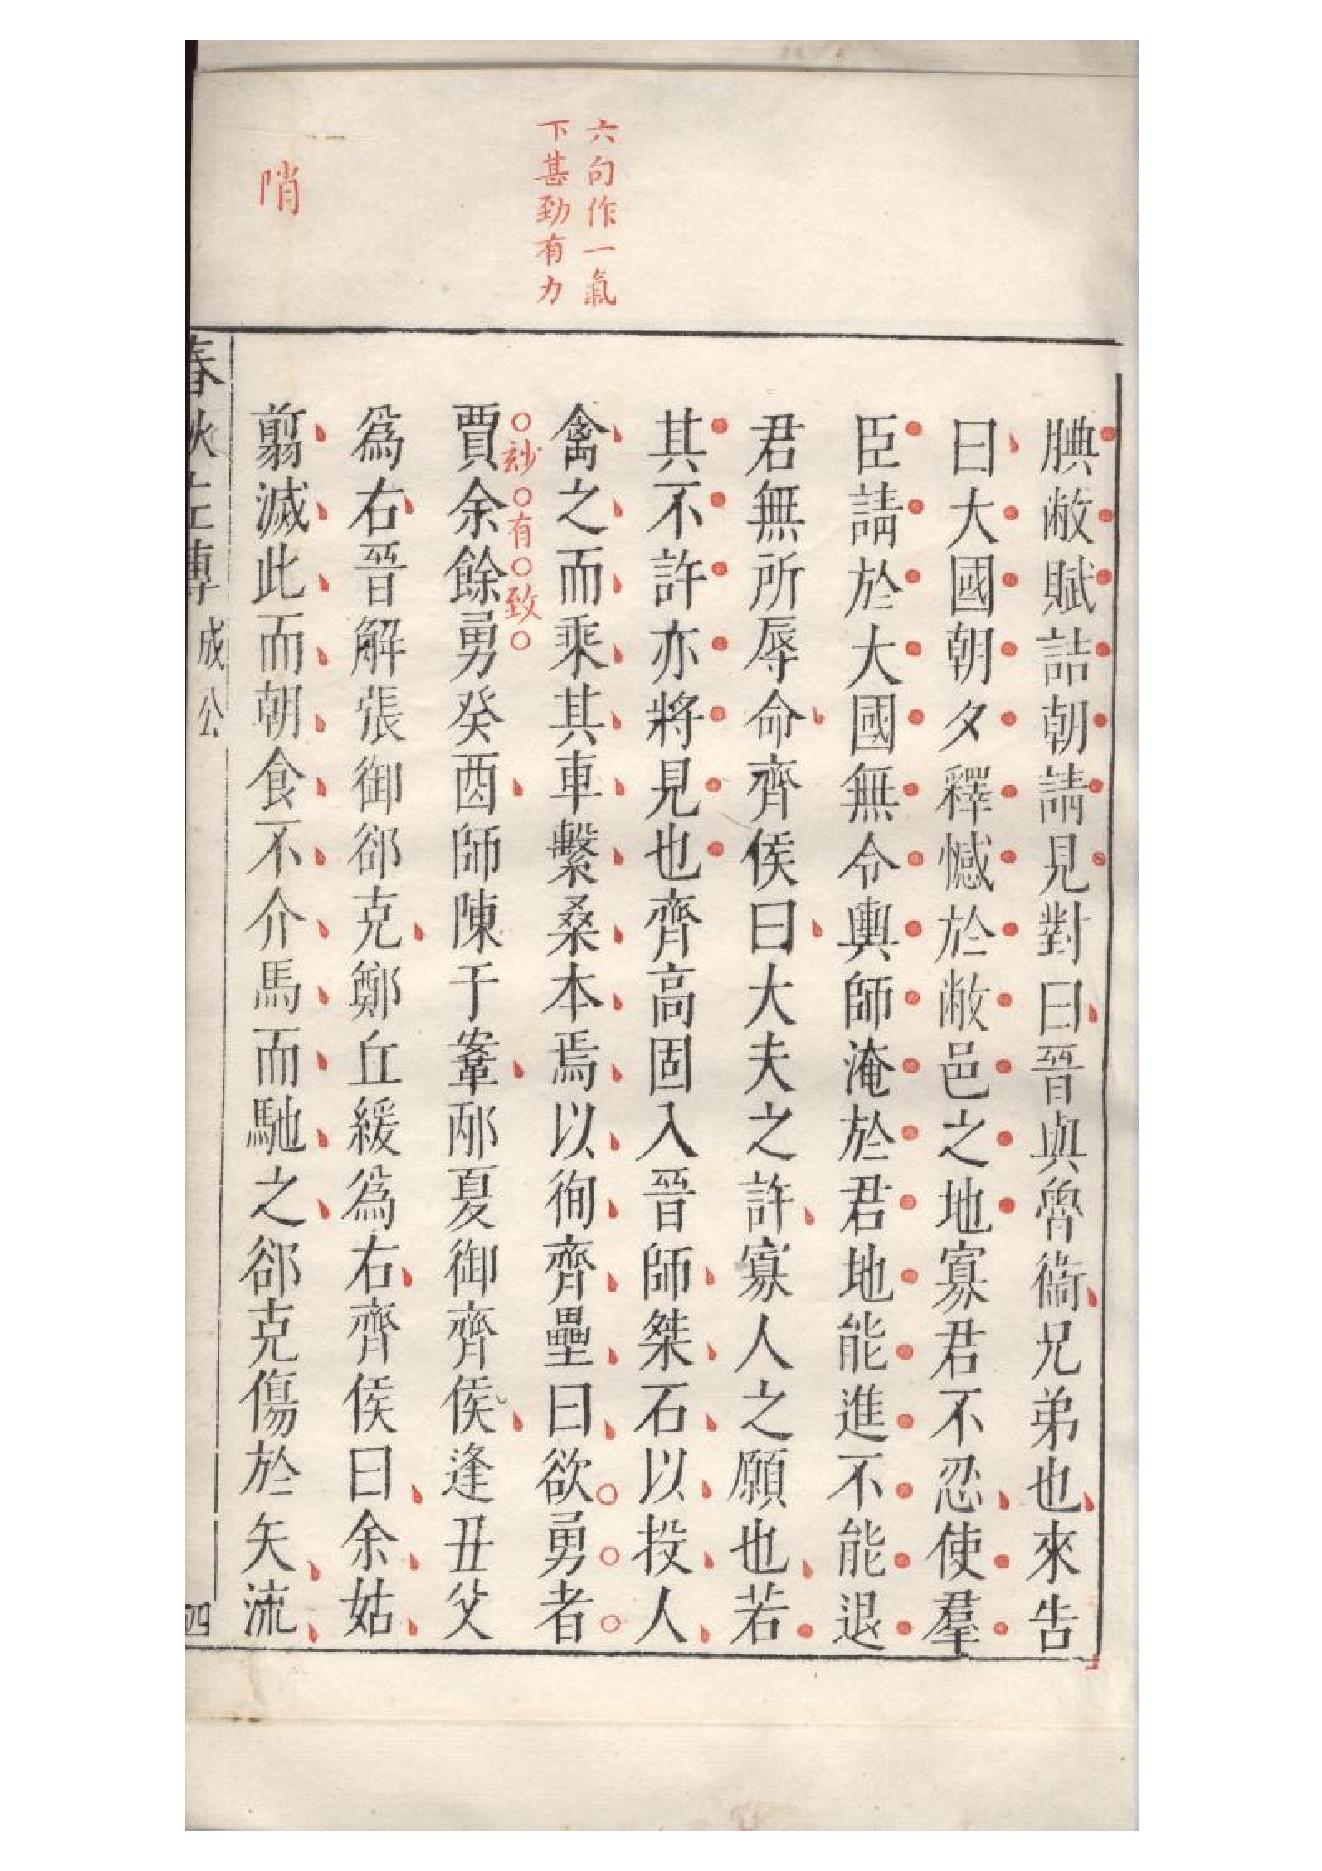 六句作一氣
下甚勁有力
陗
腆敝賦詰朝請見對曰晉與魯衞兄弟也來告
曰大國朝夕釋憾於敝邑之地寡君不忍使羣
臣請於大國無令輿師淹於君地能進不能退
君無所辱命齊侯曰大夫之許寡人之願也若
其不許亦將見也齊高固入晉師桀石以投人
禽之而乘其車繫桑本焉以徇齊壘曰欲勇者
玅有致
賈余餘勇癸酉師陳于鞌邴夏御齊侯逢丑父
爲右晉解張御郤克鄭丘緩爲右齊侯曰余姑
翦滅此而朝食不介馬而馳之郤克傷於矢流
春秋左傳 成公 四